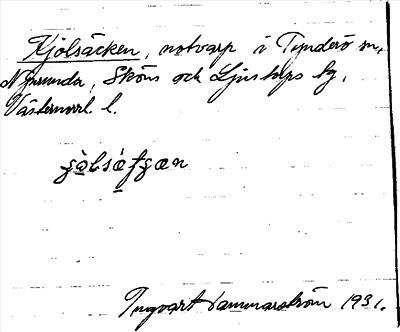 Kjolsäcken, notvarp i Tynderö sn,
Njurunda, Sköns och Ljustorps tg,
Västernorrl. l.
Ingvart Hammarström 1931.